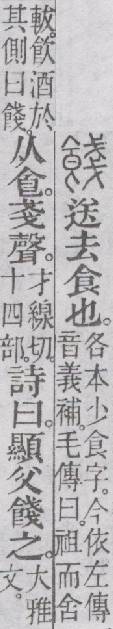 餞送去食也。各本少食字。今依左傳音義補。毛傳曰。祖而舍
軷。飲酒於其側曰餞。从食戔聲。才線切。十四部。詩曰。顯父餞之。大雅文。